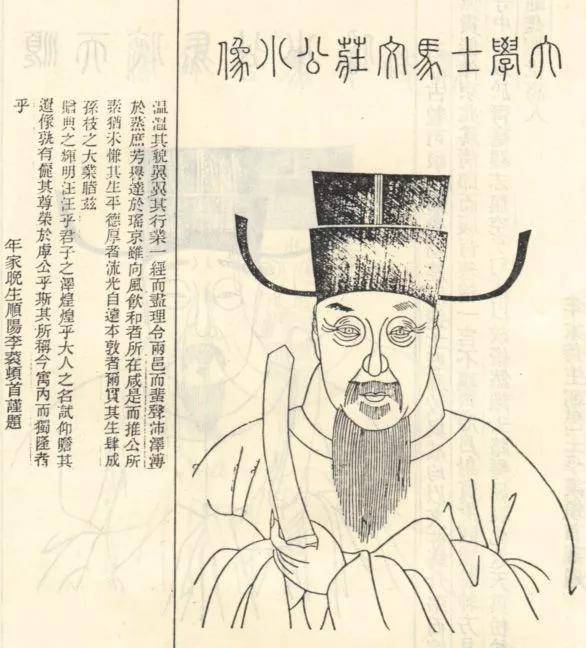 大學士馬文莊公小像
溫溫其貌翼翼其行業一經而盡理令兩邑而蜚聲沛澤溥
於蒸庶芳譽達於瑤京雖向風飲和者所在咸是而推公所
蒸猶未慊其生平德厚者流光自遠本敦者爾實其生肆成
孫枝之大業勝茲
贈典之輝明汪汪乎君子之澤煌煌乎大人之名試仰瞻其
遺像孰有儷其尊榮於虖公乎斯其所稱今寓內而獨隆者
乎
年家晚生順陽李蓘頓首謹題